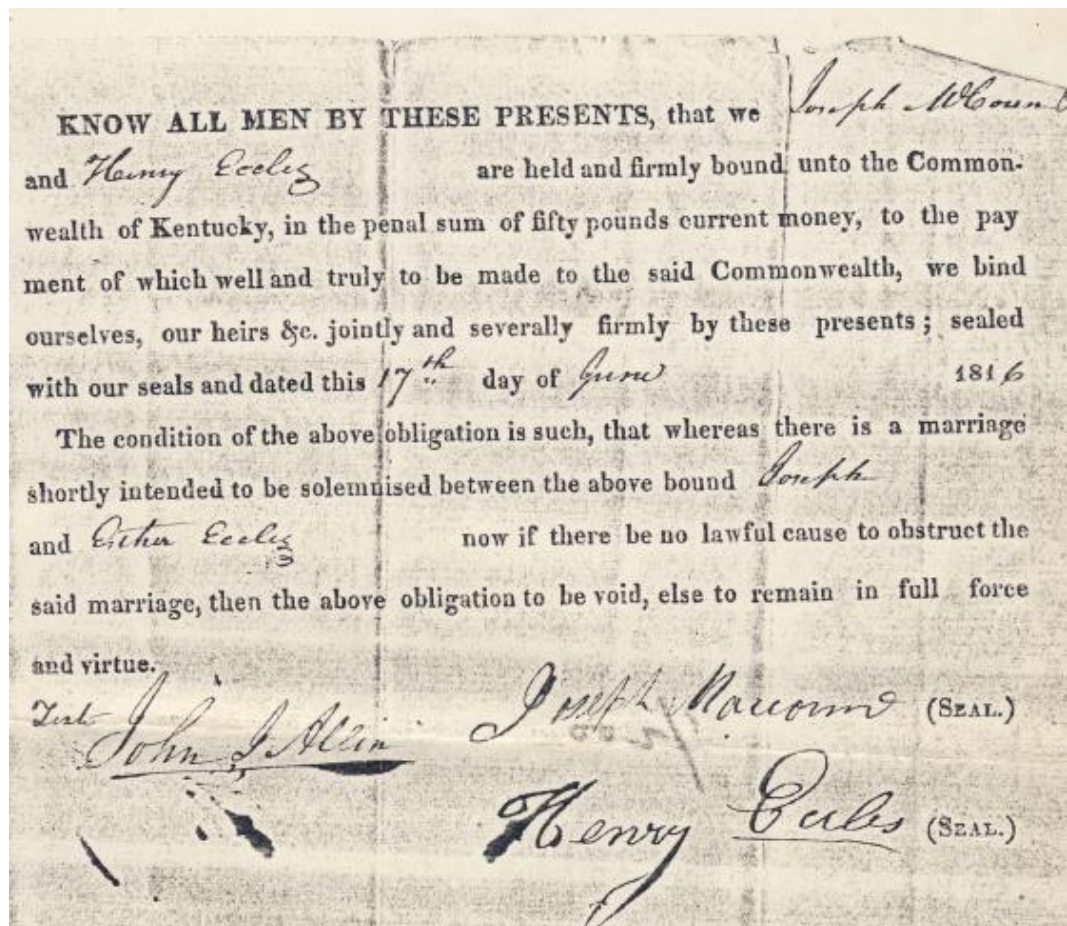 KNOW ALL MEN BY THESE PRESENTS, that we Joseph McCoun
and Henry Eccles are held and firmly bound unto the Common-
wealth of Kentucky, in the penal sum of fifty pounds current money, to the pay
ment of which well and truly to be made to the said Commonwealth, we bind
ourselves, our heirs &c. jointly and severally firmly by these presents; sealed
with our seals and dated this 17th day of June 1816
The condition of the above obligation is such, that whereas there is a marriage
shortly intended to be solemnised between the above bound Joseph
and Esther Eccles now if there be no lawful cause to obstruct the
said marriage, then the above obligation to be void, else to remain in full force
and virtue.
Test John J Allin Joseph Maccoun (SEAL.)
Henry Eccles (SEAL.)